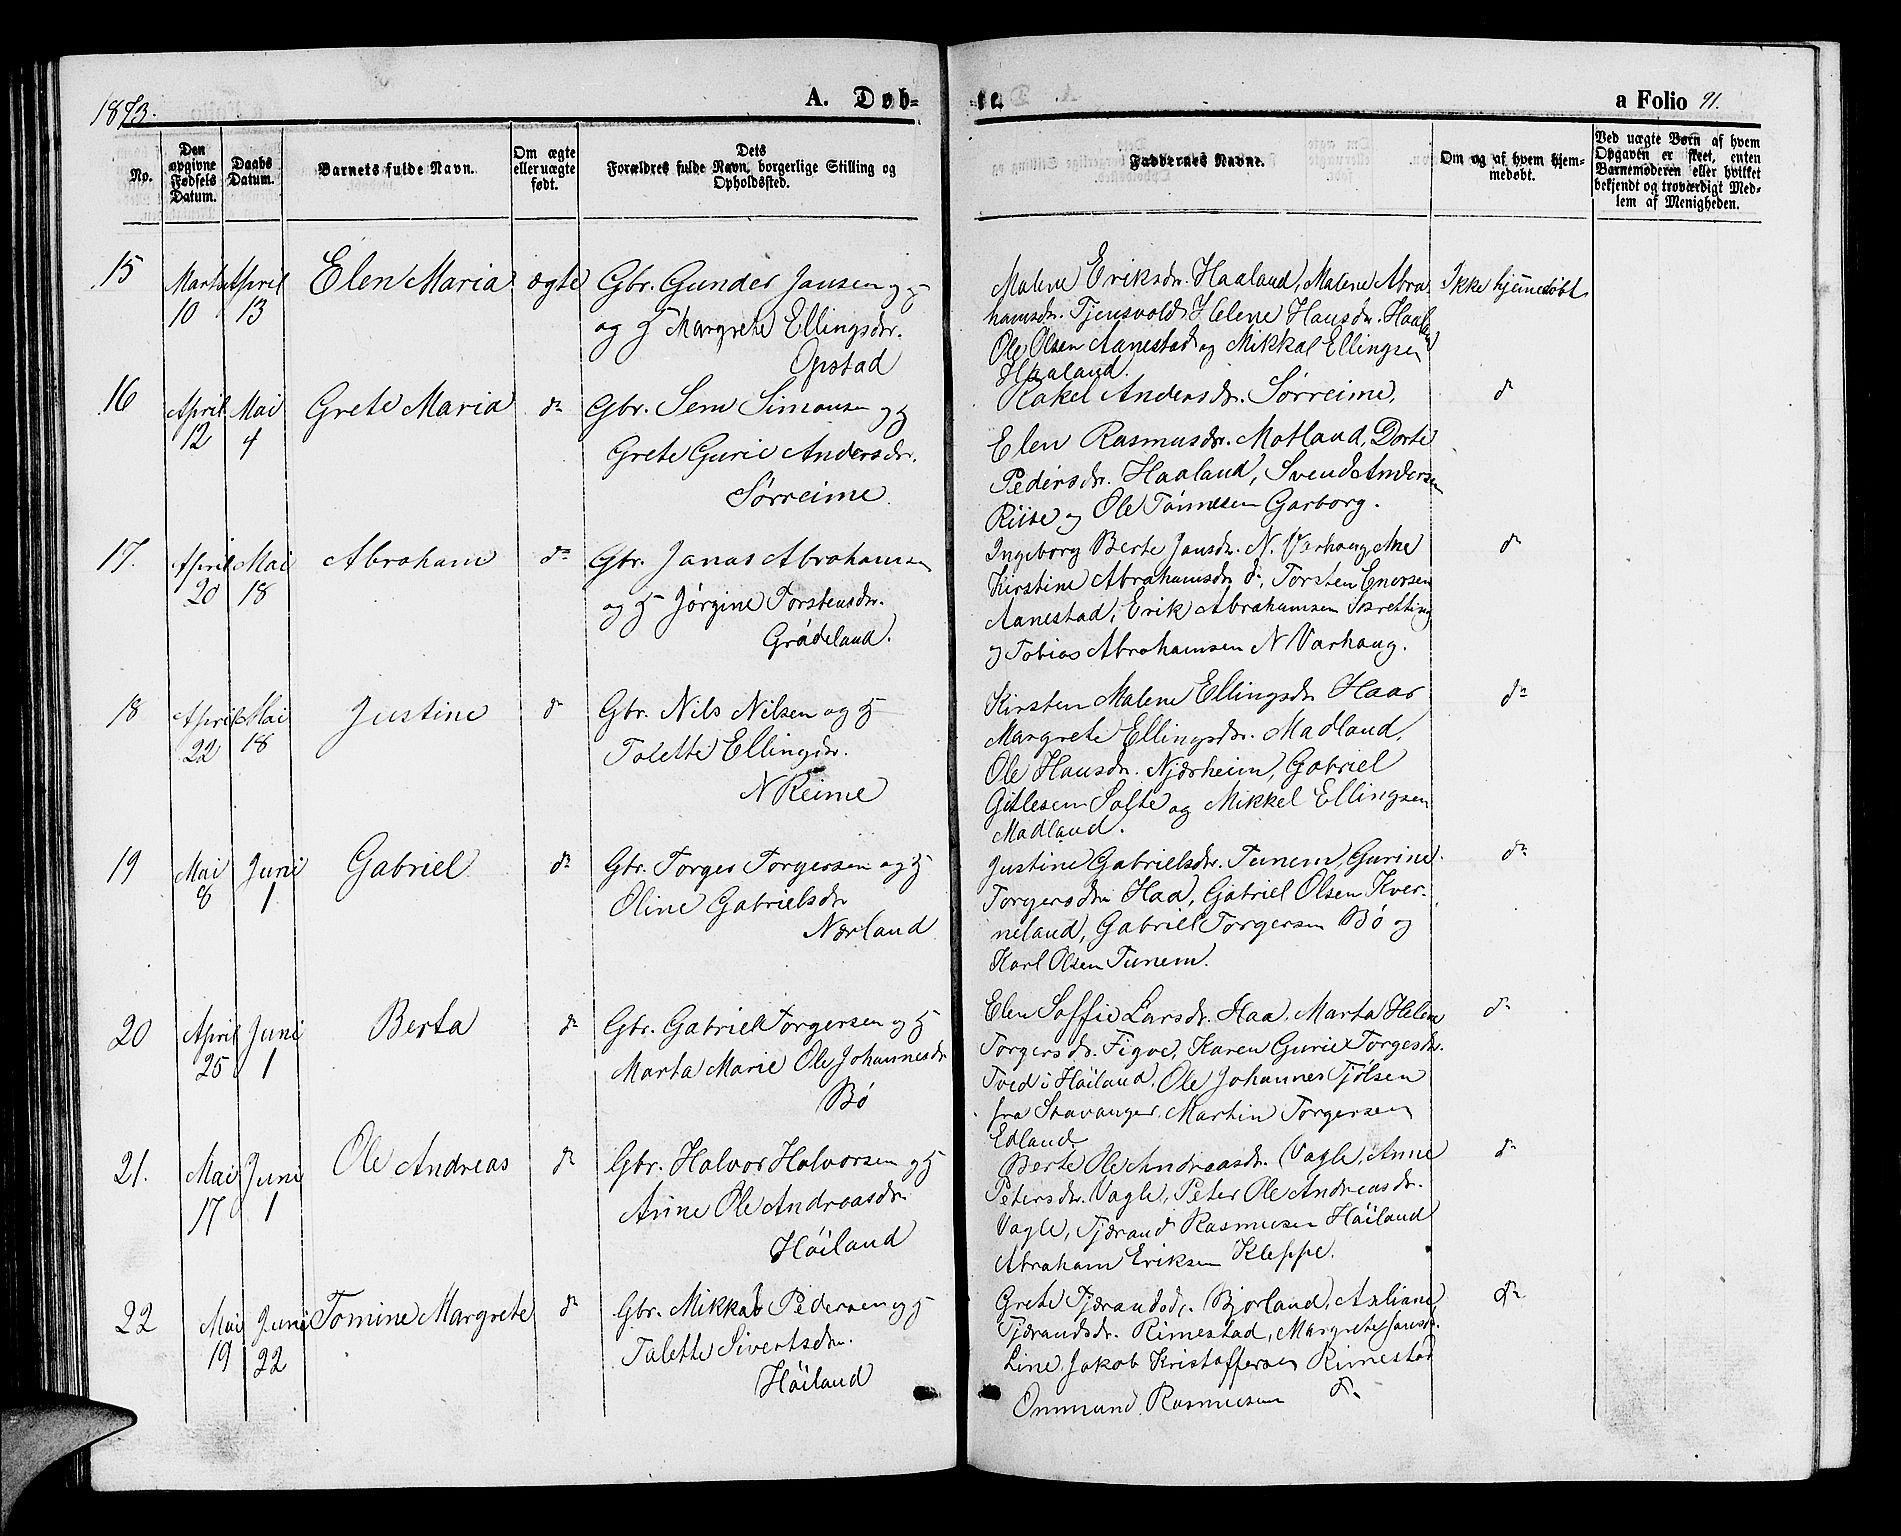 1873.
A. Døb-
te.
a Folio 91.
No.
Den opgivne Fødsels Datum.
Daabs Datum.
Barnets fulde Navn.
Om ægte eller uægte født.
Dets Forældres fulde Navn, borgerlige Stilling og Opholdssted.
Faddernes Navne.
Om og af hvem hjemmedøbt.
Ved uægte Børn af hvem Opgaven er skeet, enten Barnemoderen eller hvilket bekjendt og troværdigt Medlem af Menigheden.
15
Marts 10
April 13
Elen Maria
ægte
Gbr. Gunder Jansen og
og H Margrete Ellingsdr.
Opstad
Malene Eriksdr. Haaland, Malene Abra
hamsdr. Tjensvold Helene Hansdr. Haaland
Ole Olsen Aanestad og Mikkal Ellingsen
Haaland.
Ikke hjemmedøbt
16
April 12
Mai 4
Grete Maria
do
Gbr. Sem Simonsen og H
Grete Gurie Andersdr.
Sørreime
Rakel Andersdr. Sørreime,
Elen Rasmusdr. Motland, Dorte
Pedersdr. Haaland, Svend Andersen
Riise og Ole Tønnesen Garborg.
do
17.
April 20
Mai 18
Abraham
do
Gbr. Janas Abrahamsen
og H Jørgine Torstensdr.
Grødeland.
Ingeborg Berte Jansdr. N. Varhaug Ane
Kirstine Abrahamsdr do, Torsten Enersen
Aanestad, Erik Abrahamsen
og Tobias Abrahamsen N Varhaug.
do
18
April 22
Mai 18
Justine
do
Gbr. Nils Nilsen og H
Talette Ellingsdr.
N Reime
Kirsten Malene Ellingsdr Haar
Margrete Ellingsdr. Madland,
Ole Hansdr. Njærheim, Gabriel
Gitlesen Salte og Mikkel Ellingsen
Madland.
do
19
Mai 8
Juni 1
Gabriel
do
Gbr. Torger Torgersen og H
Oline Gabrielsdr
Nærland
Justine Gabrielsdr. Tunem, Gurine
Torgersdr. Haa, Gabriel Olsen Kver-
neland, Gabriel Torgersen Bø og
Karl Olsen Tunem.
do
20
April 25
Juni 1
Berta
do
Gbr. Gabriel Torgersen og H
Marta Marie Ole Johannesdr
Bø
Elen Soffie Larsdr. Haa, Marta Helene
Torgersdr. Figve, Karen Gurie Torgesdr.
Tved i Høiland, Ole Johannes Tjølsen
fra Stavanger. Martin Torgersen
Edland
do
21.
Mai 17
Juni 1
Ole Andreas
do
Gbr. Halvor Halvorsen og H
Anne Ole Andreasdr
Høiland
Berte Ole Andreasdr. Vagle, Anne
Petersdr. Vagle, Peter Ole Andreasdr.
Vagle, Tjærand Rasmusen Høiland
Abraham Eriksen Kleppe.
do
22
Mai 19
Juni 22
Tomine Margrete
do
Gbr. Mikkal Pedersen og H
Talette Sivertsdr.
Høiland
Grete Tjærandsd. Bjorland, Axliane
Tjærandsdr. Rimestad, Margrete Jansdr.
Line Jakob Kristoffersen Rimestad
Ommund Rasmusen do
do